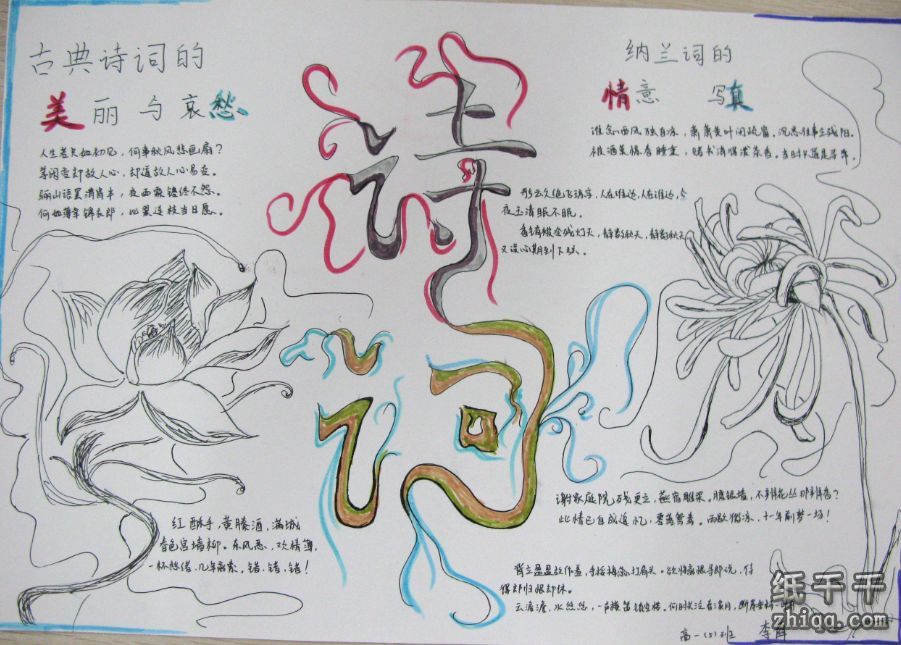 古典诗词的
美丽与哀愁
人生若只如初见，何事秋风悲画扇？
等闲变却故人心，却道故人心易变。
骊山语罢清宵半，夜雨霖铃终不怨。
何如薄幸锦衣郎，比翼连枝当日愿。
诗词
纳兰词的
情意 写真
谁念西风独自凉，萧萧黄叶闭疏窗。沉思往事立残阳。
被酒莫惊春睡重，赌书消得泼茶香。当时只道是寻常。
夜玉清眠不眠。
红酥手，黄縢酒，满城
春色宫墙柳。东风恶，欢情薄，
一杯愁绪，几年离索。错、错、错！
谢家庭院残更立，燕宿雕梁。月度银墙，不辨花丛那辨香？
此情已自成追忆，零落鸳鸯。雨歇微凉，十一年前梦一场！
偎却归根却休。
云澹澹，水悠悠，一声横笛锁空楼。何时共泛春溪月，断岸垂杨一叶
高一(5)班 李
纸千千
zhiqq.com